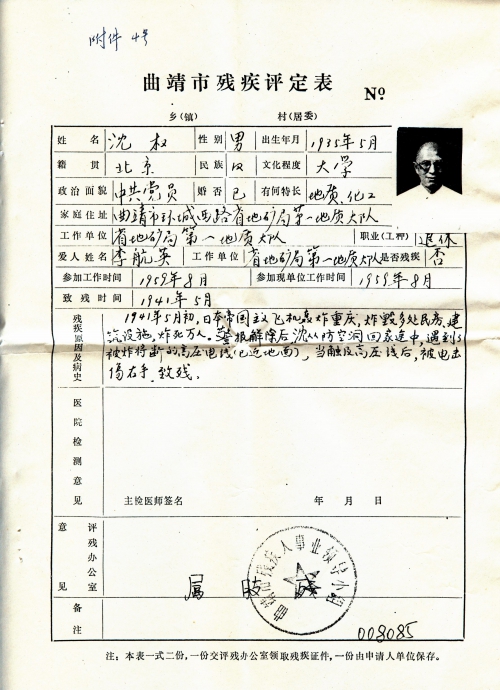 附件 4号
曲靖市残疾评定表
No
乡(镇) 村(居委)
姓名 沈权 性别 男 出生年月 1935年5月
籍贯 北京 民族 汉 文化程度 大学
政治面貌 中共党员 婚否 已 有何特长 地质.化工
家庭住址 曲靖市环城西路省地矿局第一地质大队
工作单位 省地矿局第一地质大队 职业(工种) 退休
爱人姓名 李航英 工作单位 省地矿局第一地质大队 是否残疾 否
参加工作时间 1959年8月 参加现单位工作时间 1959年8月
致残时间 1941年5月
残疾原因及病史
1941年5月初,日本帝国主义飞机轰炸重庆,炸毁多处民房.建
筑设施,炸死万人。警报解除后沈从防空洞回家途中,遇到
被炸将断的高压电线(已近地面),当触及高压线后,被电击
伤右手.致残.
医院检测意见
主检医师签名 年 月 日
评残办公室意见
属 肢 残
曲靖市残疾人事业领导小组
备注
008085
注:本表一式二份,一份交评残办公室领取残疾证件,一份由申请人单位保存。